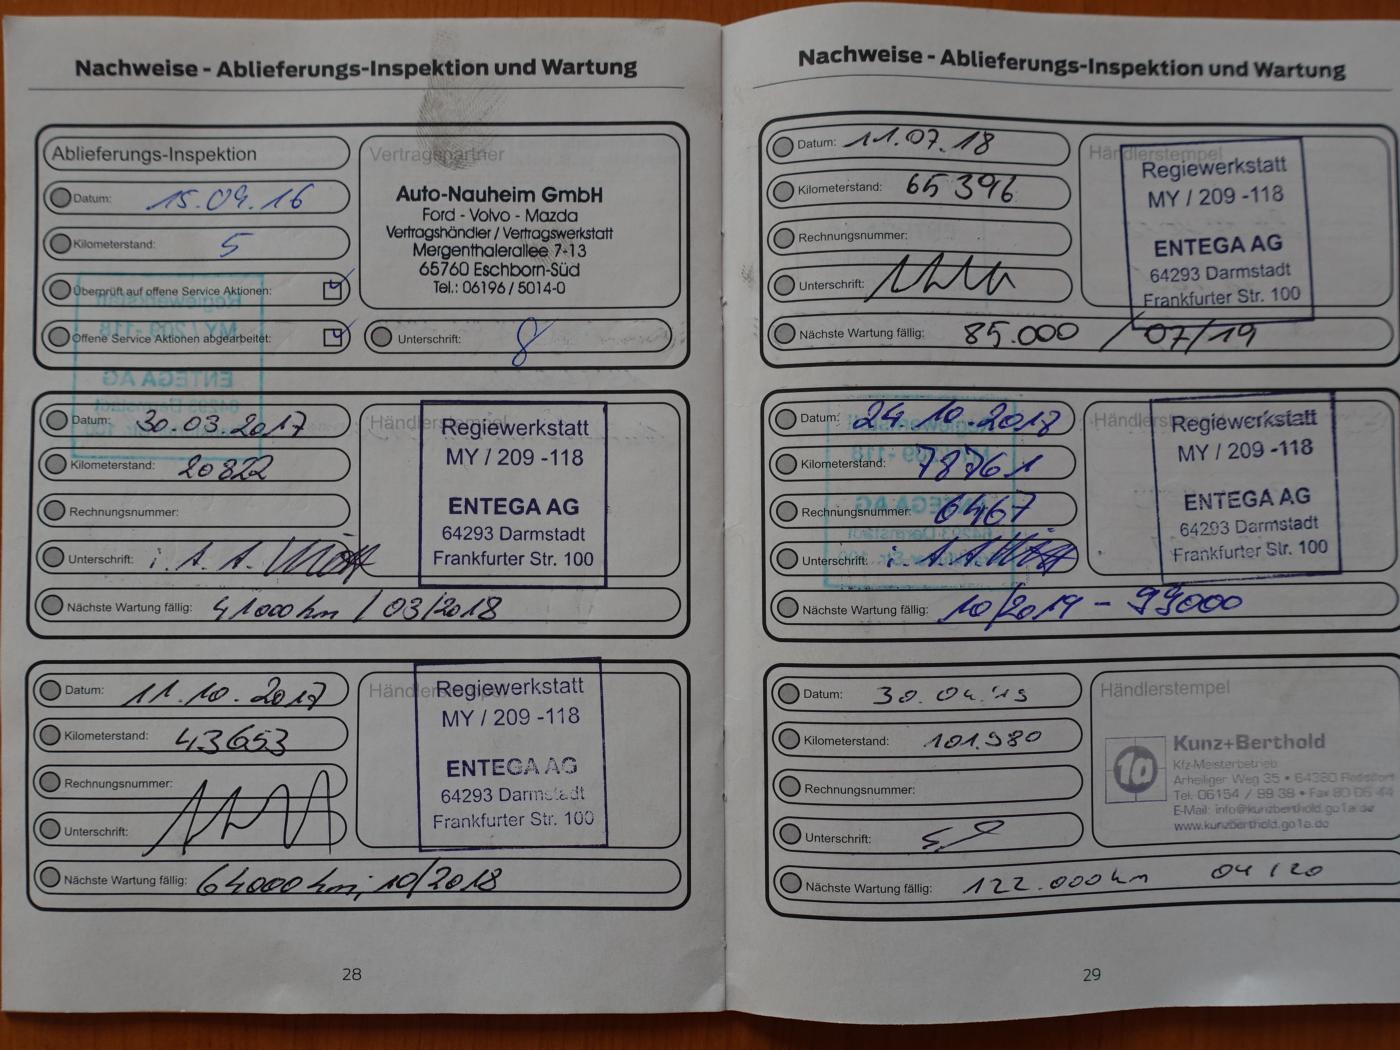 Nachweise - Ablieferungs-Inspektion und Wartung
Ablieferungs-Inspektion
Datum: 15.09.16
Kilometerstand: 5
Überprüft auf offene Service Aktionen:
Offene Service Aktionen abgearbeitet:
Vertragspartner
Auto-Nauheim GmbH
Ford - Volvo - Mazda
Vertragshändler / Vertragswerkstatt
Mergenthalerallee 7-13
65760 Eschborn-Süd
Tel.: 06196 / 5014-0
Unterschrift:
Datum: 30.03.2017
Kilometerstand: 20822
Rechnungsnummer:
Unterschrift: i. A. A.
Nächste Wartung fällig: 41000 km / 03/2018
Händlerstempel
Regiewerkstatt
MY / 209 -118
ENTEGA AG
64293 Darmstadt
Frankfurter Str. 100
Datum: 11.10.2017
Kilometerstand: 43653
Rechnungsnummer:
Unterschrift:
Nächste Wartung fällig: 64000 km; 10/2018
Händlerstempel
Regiewerkstatt
MY / 209 -118
ENTEGA AG
64293 Darmstadt
Frankfurter Str. 100
28
Nachweise - Ablieferungs-Inspektion und Wartung
Datum: 11.07.18
Kilometerstand: 65396
Rechnungsnummer:
Unterschrift:
Nächste Wartung fällig: 85.000 / 07/19
Händlerstempel
Regiewerkstatt
MY / 209 -118
ENTEGA AG
64293 Darmstadt
Frankfurter Str. 100
Datum: 24.10.2018
Kilometerstand: 78761
Rechnungsnummer: 6467
Unterschrift: i. A. A.
Nächste Wartung fällig: 10/2019 - 99000
Händlerstempel
Regiewerkstatt
MY / 209 -118
ENTEGA AG
64293 Darmstadt
Frankfurter Str. 100
Datum: 30.04.'19
Kilometerstand: 101.980
Rechnungsnummer:
Unterschrift:
Nächste Wartung fällig: 122.000 km 04/20
Händlerstempel
1a
Kunz+Berthold
Kfz-Meisterbetrieb
Arheilger Weg 35 • 64380
Tel. 06154 / 99 39 • Fax 80 06 44
E-Mail: info@kunzberthold.go1a.de
www.kunzberthold.go1a.de
29